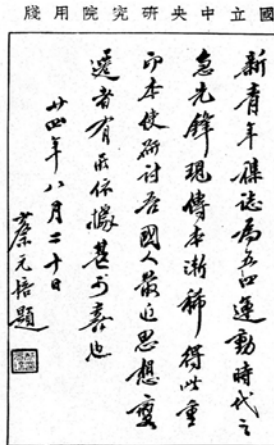 國立中央研究院用牋
新青年雜誌為五四運動時代之
急先鋒現傳本漸稀得此重
印本使研討吾國人最近思想變
遷者有所依據甚可喜也
廿四年八月二十日
蔡元培題